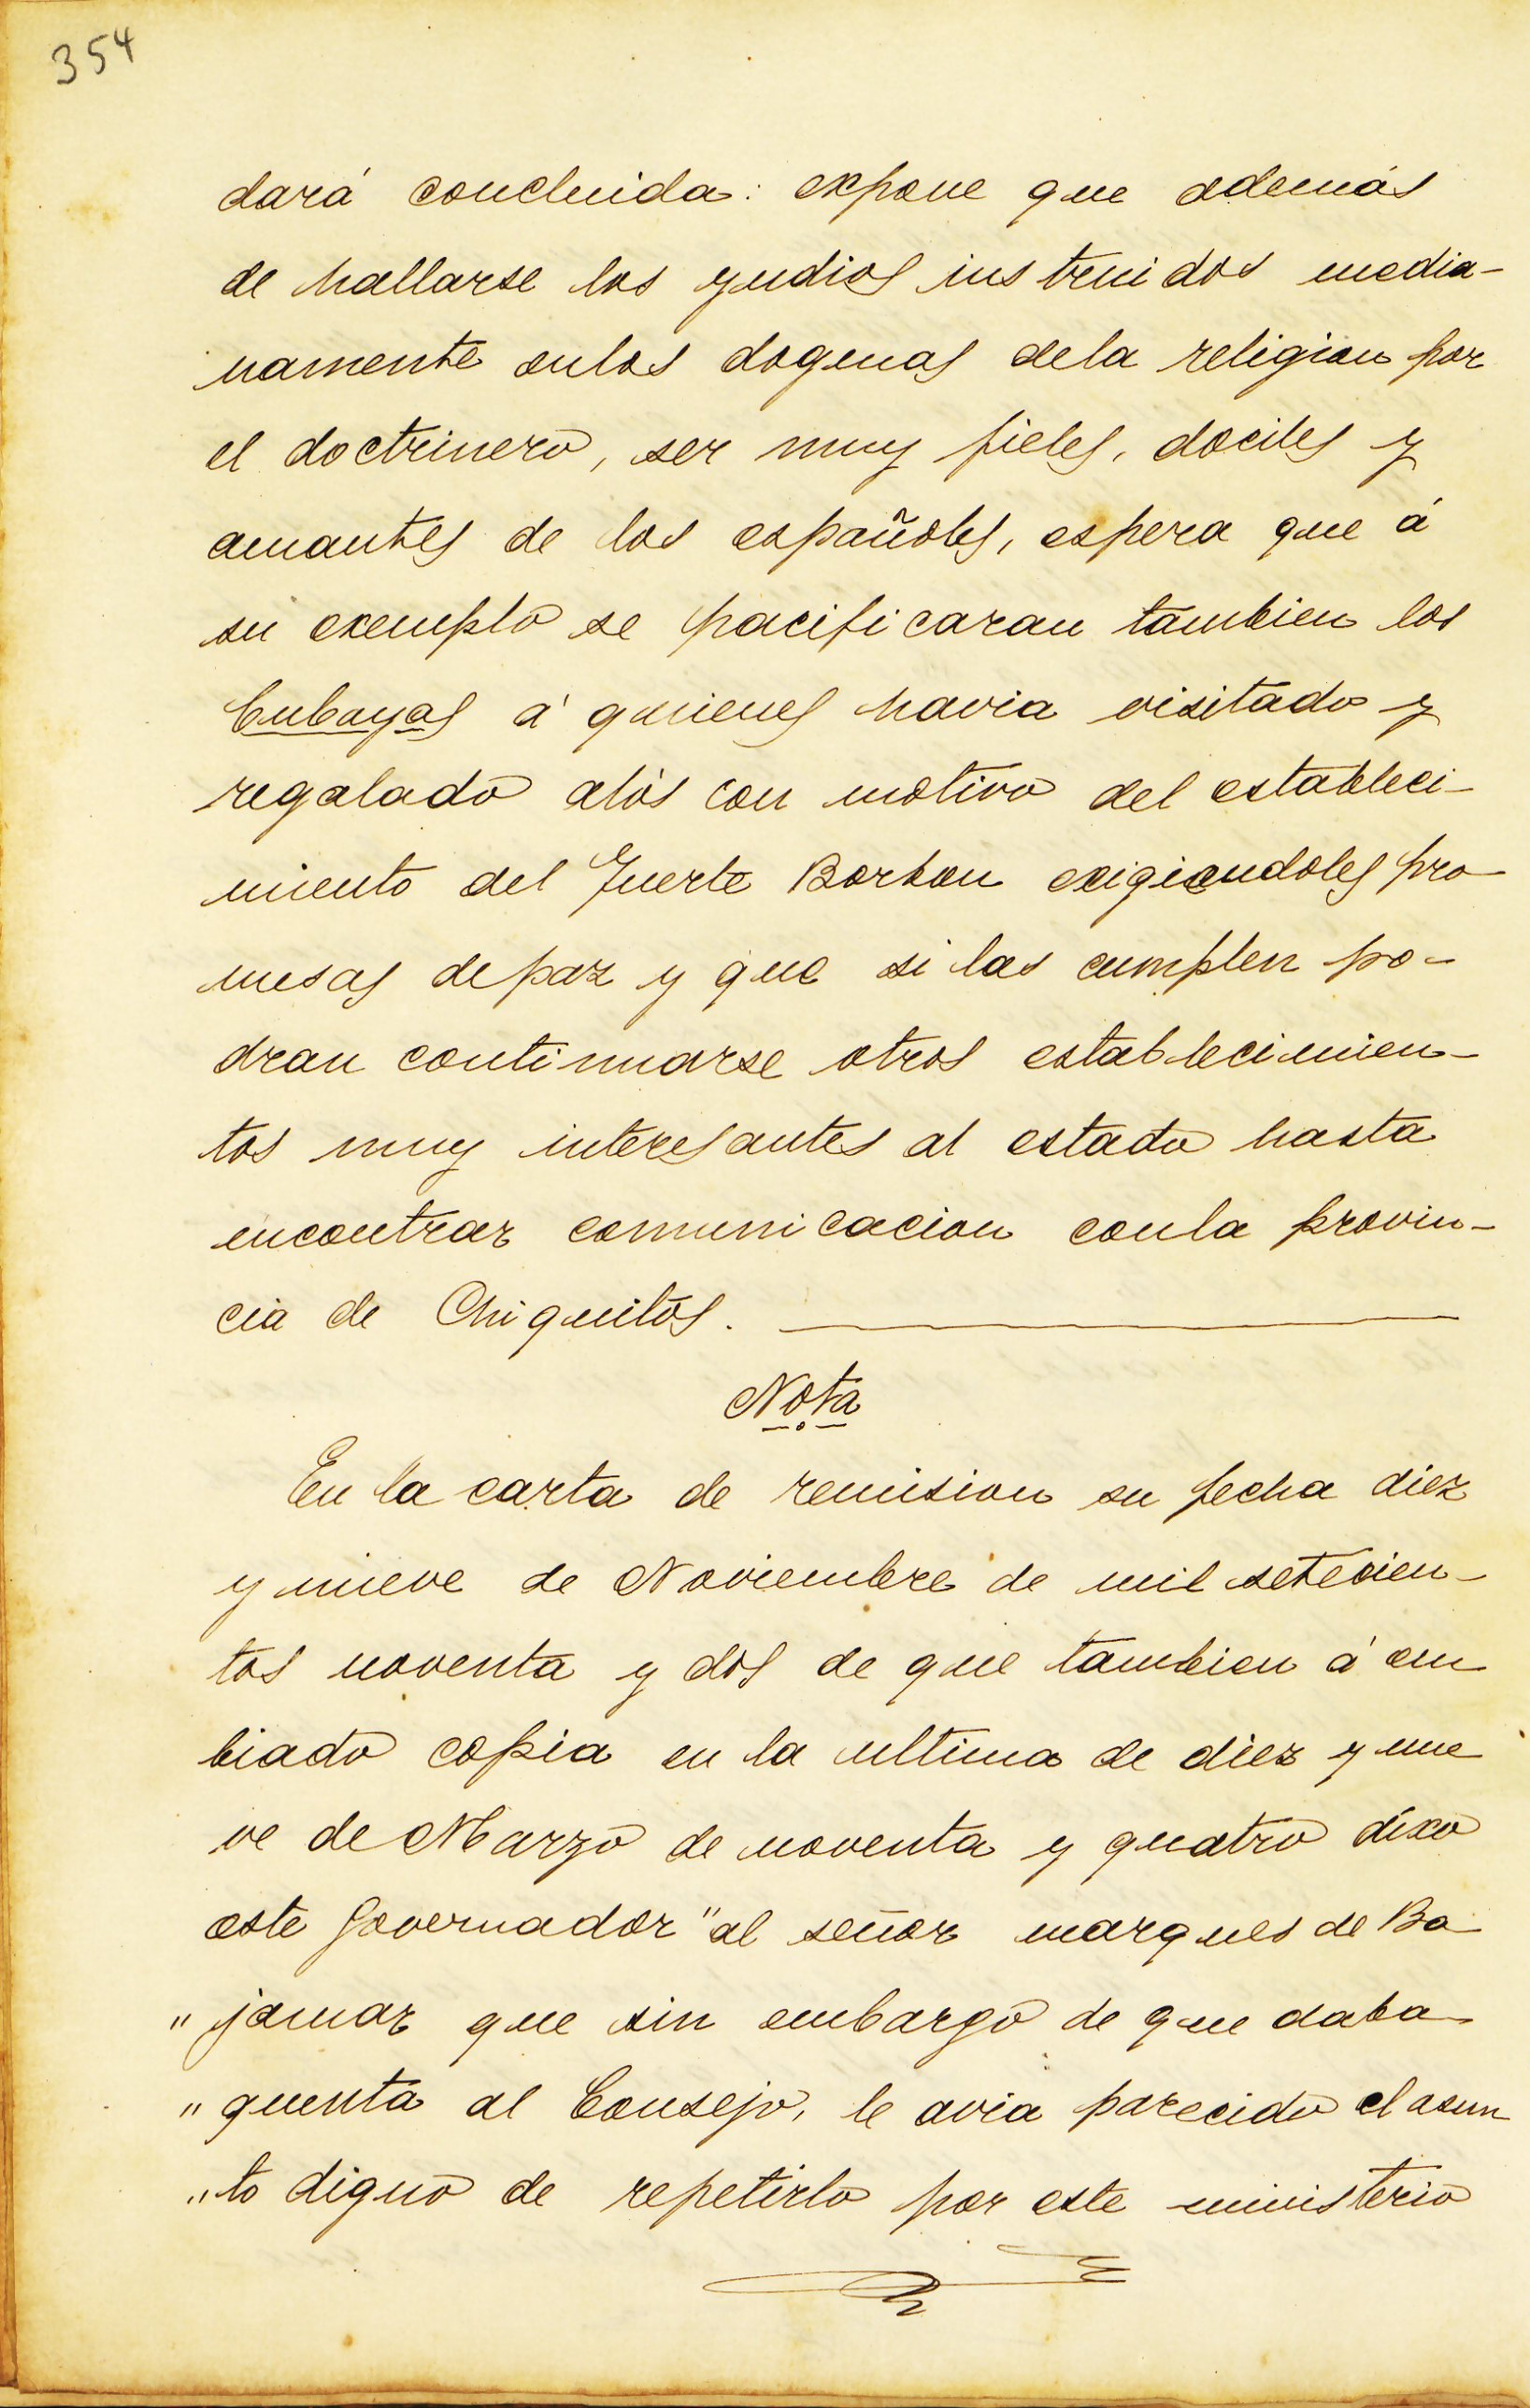 354
dará concluida: expone que además
de hallarse los yndios instruidos media-
namente enlos dogmas dela religion por
el doctrinero, ser muy fieles, dociles y
amantes de los españoles, espera que á
su exemplo se pacificaran tambien los
Cubayas á quienes havia visitado y
regalado alós con motivo del estableci-
miento del Fuerte Borbon exigiendoles pro-
mesas depaz y que si las cumplen po-
dran continuarse otros establecimien-
tos muy interesantes al estado hasta
encontrar comunicacion conla provin-
cia de Chiquitos.
Nota
En la carta de remision su fecha diez
y nueve de Noviembre de mil setecien-
tos noventa y dos de que tambien á em
biado copia en la ultima de diez y nue
ve de Marzo de noventa y quatro dixo
este Governador "al señor marques de Ba
" jamar que sin embargo de que daba
" quenta al Consejo, le avia parecido el asun
" to digno de repetirlo por este ministerio